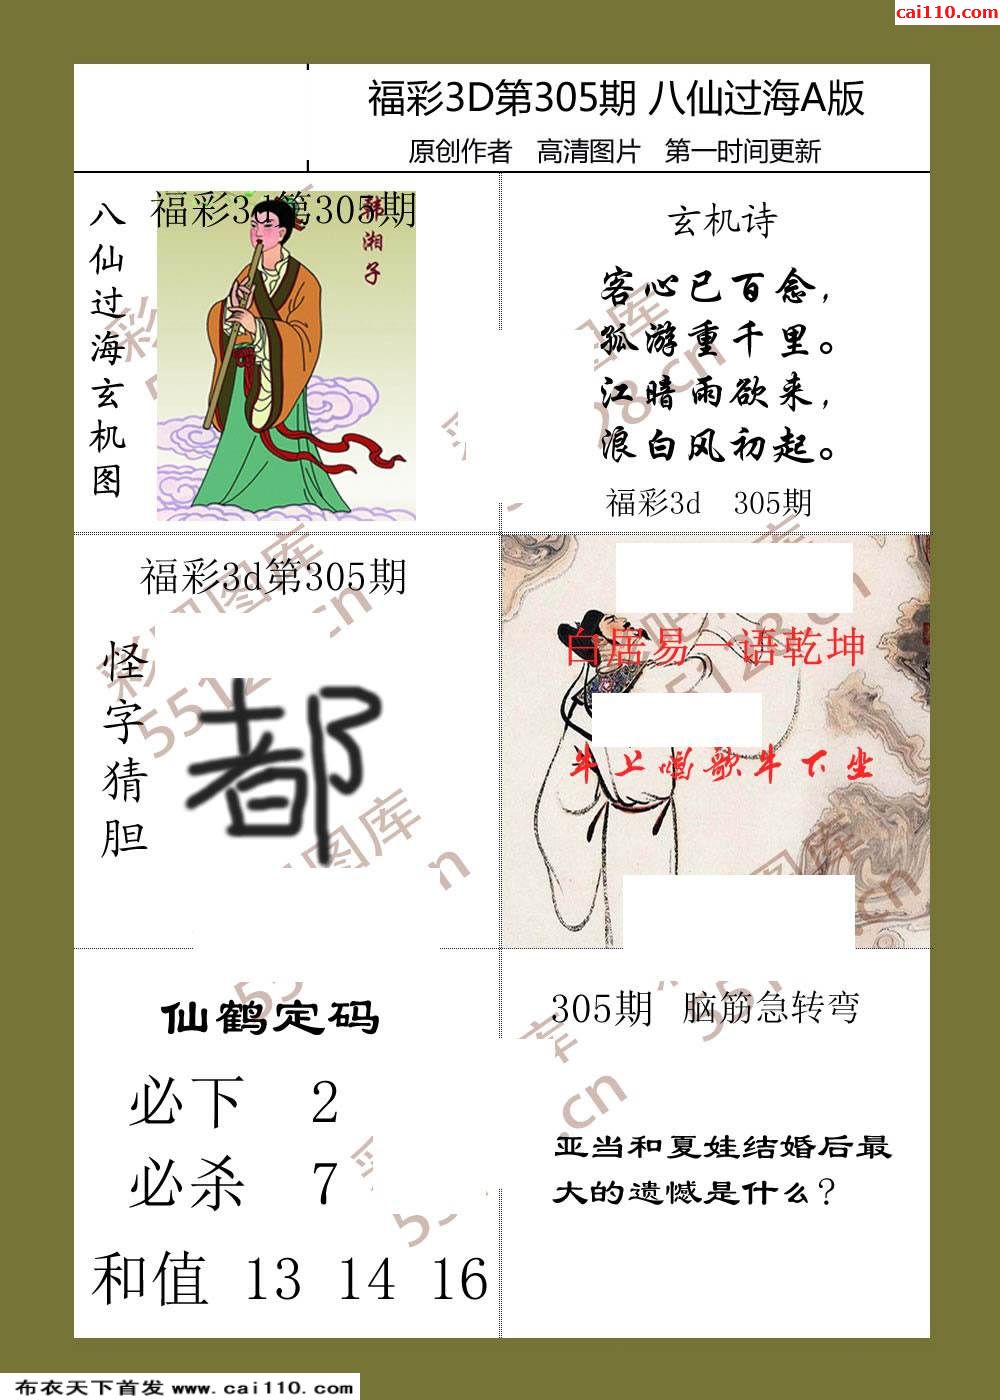 cai110.com
福彩3D第305期 八仙过海A版
原创作者 高清图片 第一时间更新
八仙过海玄机图
福彩3d第305期
韩湘子
玄机诗
客心已百念，
孤游重千里。
江暗雨欲来，
浪白风初起。
福彩3d 305期
福彩3d第305期
怪字猜胆
都
白居易一语乾坤
牛上唱歌牛下坐
仙鹤定码
必下 2
必杀 7
和值 13 14 16
305期 脑筋急转弯
亚当和夏娃结婚后最
大的遗憾是什么?
布衣天下首发 www.cai110.com